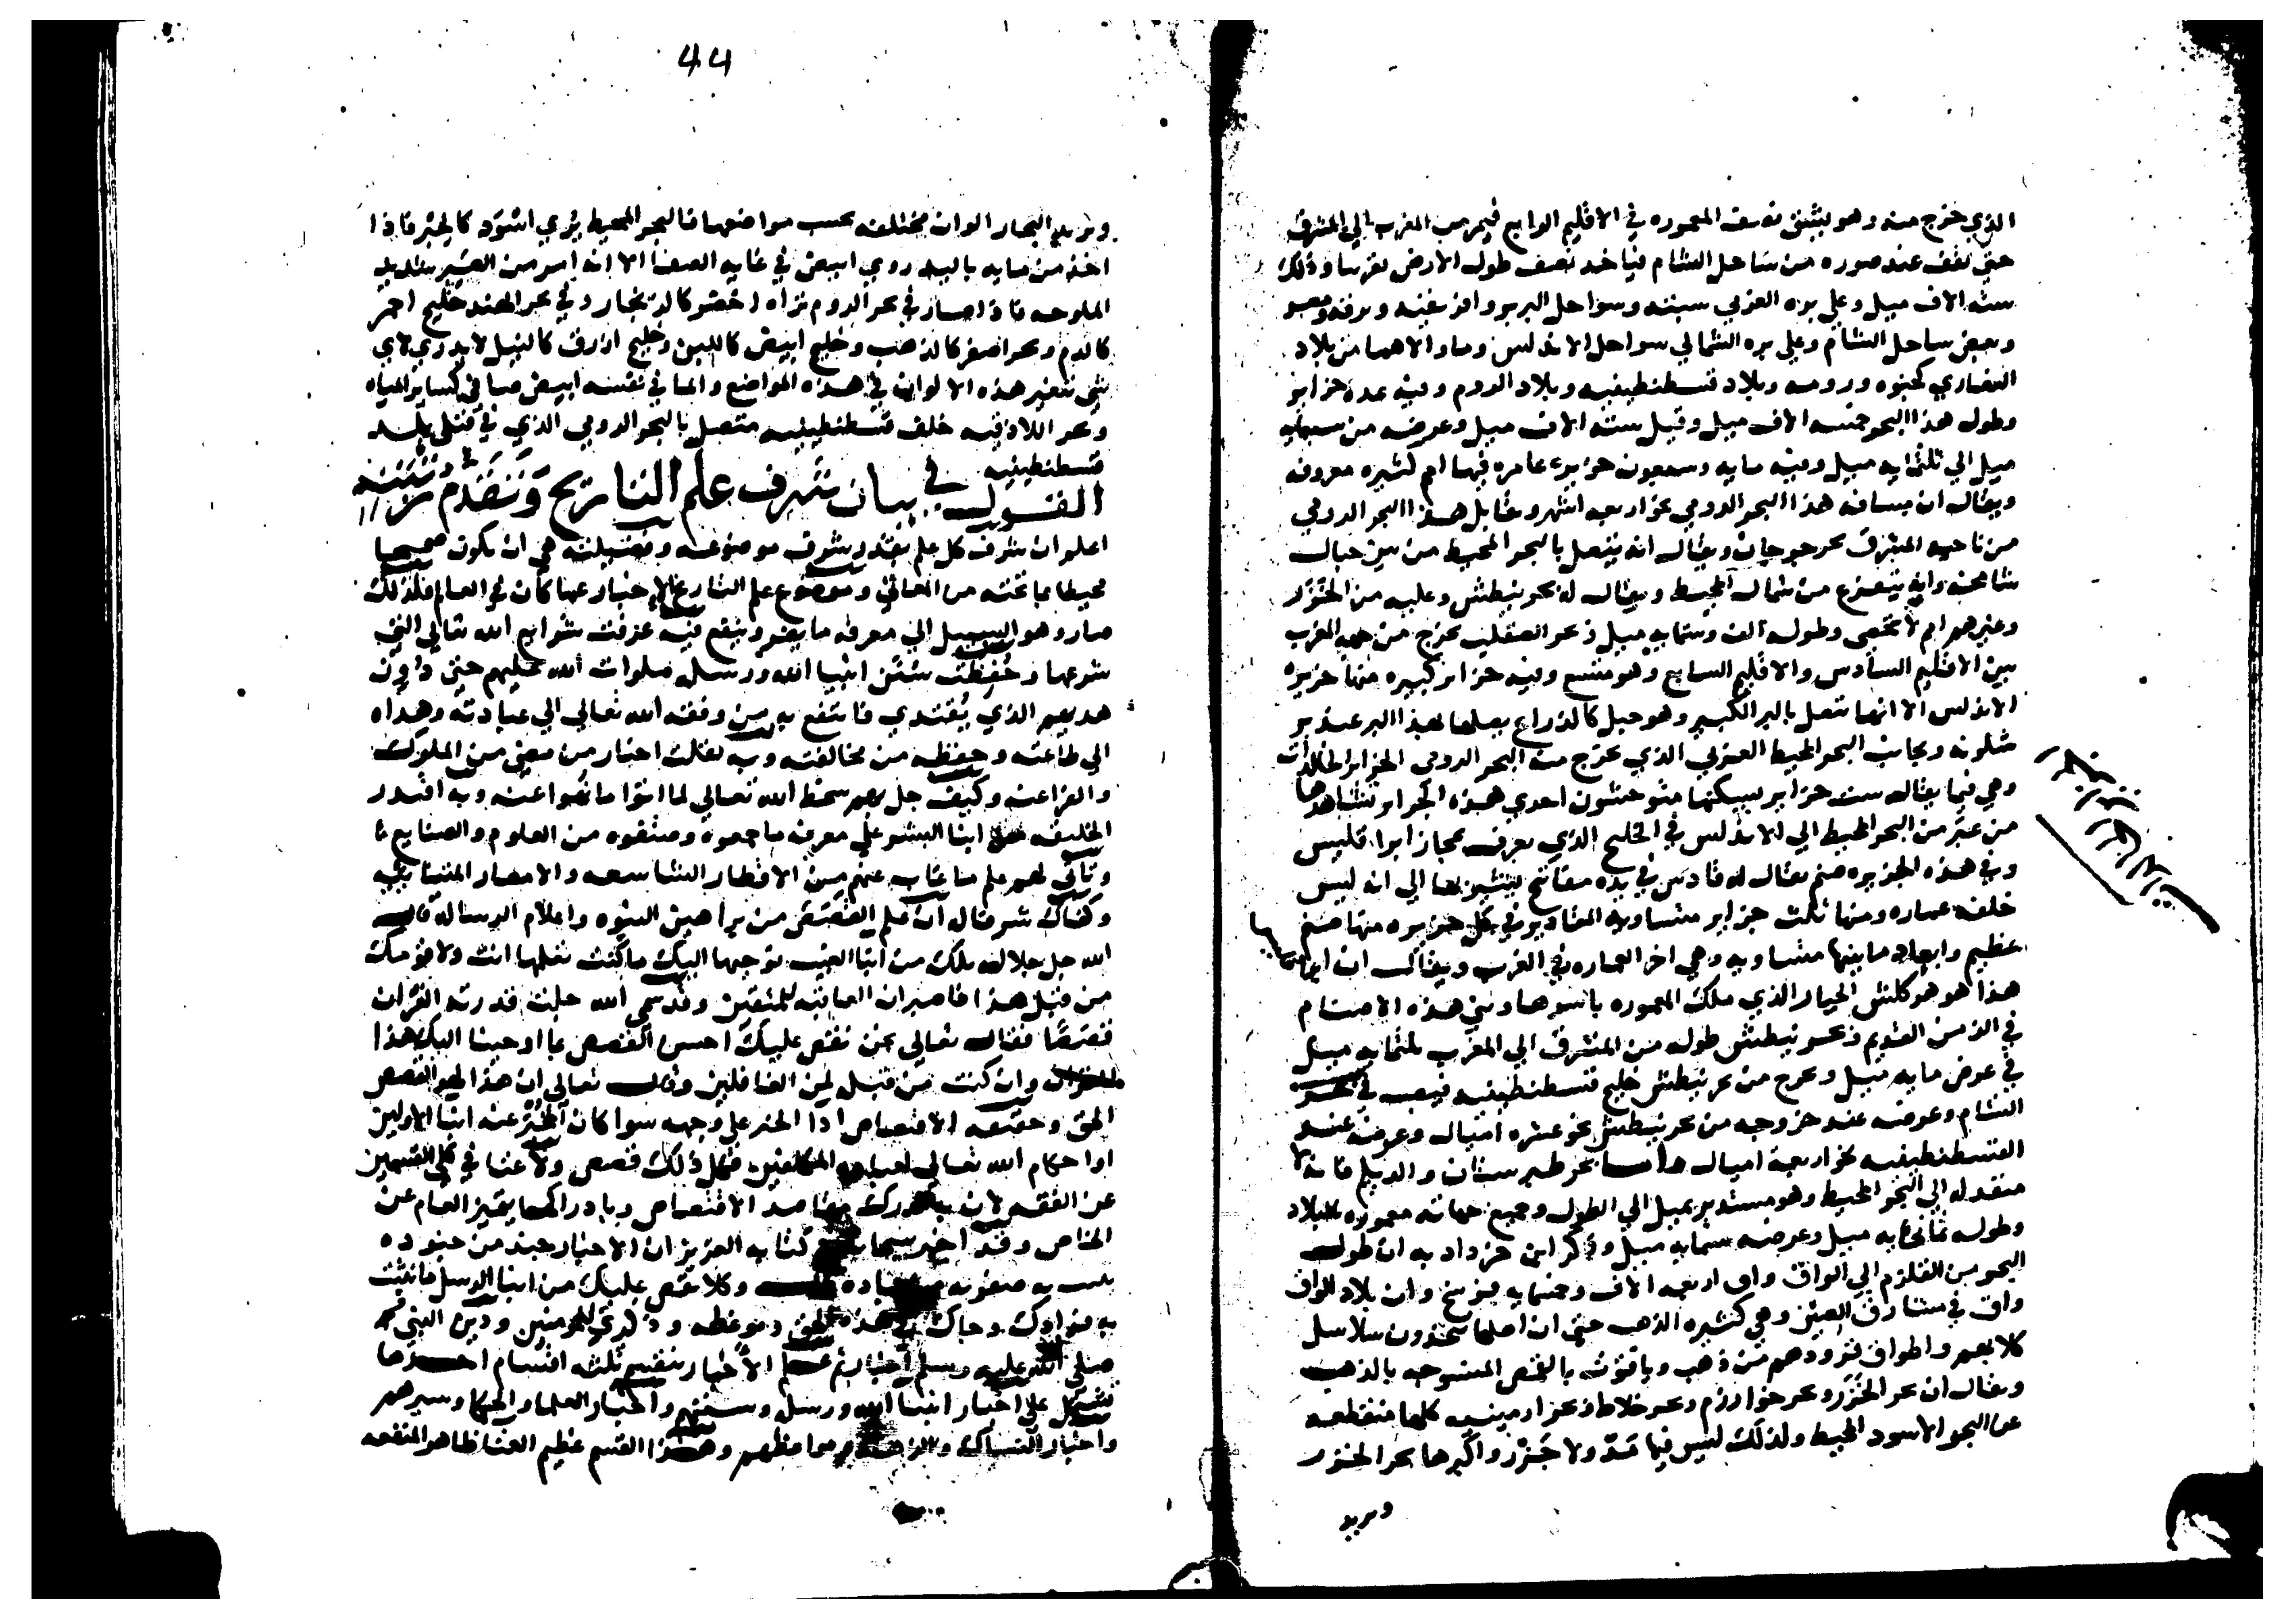 الذي خرج منه وهو يشق نصف المعموره في الاقليم الرابع فيمر من المغرب الي المشرق
حتي يقف عند صوره من ساحل الشام فياخد نصف طول الارض بقربها وذلك
سته الاف ميل وعلي بره الغربي سبته وسواحل البربر وافريقيه وبرقه ومصر
وبعض ساحل الشام وعلي بره الشمالي سواحل الاندلس وما والاهما من بلاد
النصاري كجنوه ورومه وبلاد قسطنطينيه وبلاد الروم وفيه عدة جزاير
وطول هذا البحر خمسه الاف ميل وقيل سته الاف ميل وعرضه من سبعمايه
ميل الي ثلثمايه ميل وفيه مايه وسبعون جزيره عامره فيها امم كثيره معروفه
ويقال ان مسافه هذا البحر الرومي نحو اربعه اشهر ويقابل هذا البحر الرومي
من ناحيه المشرق بحر جرجان ويقال انه يتصل بالبحر المحيط من بين جبال
شامخه وانه يتفرع من شمال المحيط ويقال له بحر نيطش وعليه من الخزر
وغيرهم امم لا تحصي وطوله الف وثلثمايه ميل وبحر الصقلب يخرج من جهه المغرب
بين الاقليم السادس والاقليم السابع وهو متسع وفيه جزاير كبيره منها جزيره
الاندلس الا انها تتصل بالبر الكبير وهو جبل كالذراع يصلها بهذا البر عند بر
شلونه وبجانب البحر المحيط الغربي الذي يخرج منه البحر الرومي الجزاير الخالدات
وهي فيما يقال ست جزاير يسكنها متوحشون احدي هذه الجزاير تشاهدها
من عبر من البحر المحيط الي الاندلس في الخليج الذي يعرف بمجاز ابراقليس
وفي هذه الجزيره صنم يقال له قادس في يده مفاتيح يشير بها الي انه ليس
خلفه عماره ومنها ثلث جزاير متساويه المقادير في كل جزيره منها صنم
عظيم وابعاد ما بينها متساويه وهي اخر العماره في الغرب ويقال ان
هذا هو هركلش الجبار الذي ملك المعموره باسرها وبني هذه الاصنام
في الزمن القديم وبحر نيطش طوله من المشرق الي المغرب ثلثمايه ميل
في عرض مايه ميل ويخرج من بحر نيطش خليج قسطنطينيه فيصب في بحر
الشام وعرضه عند خروجه من بحر نيطش نحو عشره اميال وعرضه عند
القسطنطينيه نحو اربعه اميال واما بحر طبرستان والديلم فانه لا
منفد له الي البحر المحيط وهو مستدير يميل الي الطول وجميع جهاته معموره بالبلاد
وطوله ثمانمايه ميل وعرضه ستمايه ميل وذكر ابن خرداد به ان طول
البحر من القلزم الي الواق واق اربعه الاف وخمسمايه فرسخ وان بلاد الواق
واق في مشارق الصين وهي كثيره الذهب حتي ان اهلها يتخذون سلاسل
كلابهم واطواق قرودهم من ذهب وياتون بالقمص المنسوجه بالذهب
ويقال ان بحر الخزر وبحر خوارزم وبحر خلاط وبحر ارمينيه كلها منقطعه
عن البحر الاسود المحيط ولذلك ليس فيها مد ولا جزر واكبرها بحر الخزر
وبريد
44
البحار الوان مختلفه بحسب مواضعها فالبحر المحيط يري اسود كالحبر فاذا
اخذ من مايه باليد روي ابيض في غايه الصفا الا انه امر من الصبر شديد
الملوحه فاذا صار في بحر الروم تراه اخضر كالزنجار وفي بحر الهند خليج احمر
كالدم وبحر اصفر كالذهب وخليج ابيض كاللبن وخليج ازرق كالنيل لا يدري لاي
شي تتغير هذه الالوان في هذه المواضع والما في نفسه ابيض صافي كساير المياه
وبحر اللاذقيه خلف قسطنطينيه متصل بالبحر الرومي الذي في قبلي بلد
قسطنطينيه
القول في بيان شرف علم التاريخ وتقدم رتبته
اعلم ان شرف كل علم بقدر شرف موضوعه وفضيلته هي ان يكون صحيحا
محيطا بما تحته من المعاني وموضوع علم التاريخ الاخبار عما كان في العالم فلذلك
صار وهو السبيل الي معرفه ما يضر وينفع فيه عرفت شرايع الله تعالي التي
شرعها وحفظت سنن انبيا الله ورسله صلوات الله عليهم حتي
هديهم الذي يقتدي فانتفع به من وفقه الله تعالي الي عبادته وهداه
الي طاعته وحفظه من مخالفته وبه نقلت اخبار من مضي من الملوك
والفراعنه وكيف حل بهم سخط الله تعالي لما اتوا ما نهوا عنه وبه اقتدر
الخليقه من ابنا البشر علي معرفه ما جمعوه وصنفوه من العلوم والصنايع
وتاتي لهم علم ما غاب عنهم من الاقطار الشاسعه والامصار المتنايه
وكفاك شرفا ان علم القصص من براهين النبوه واعلام الرساله قال
الله جل جلاله تلك من انبا الغيب نوحيها اليك ما كنت تعلمها انت ولا قومك
من قبل هذا فاصبر ان العاقبه للمتقين وقد سمي الله جلت قدرته القران
قصصا فقال تعالي نحن نقص عليك احسن القصص بما اوحينا اليك هذا
القران وان كنت من قبله لمن الغافلين وقال تعالي ان هذا لهو القصص
الحق وحقيقه الاقتصاص ادا الخبر علي وجهه سوا كان المخبر عنه انبا الاولين
او احكام الله تعالي لعباده المكلفين فكل ذلك قصص ولا غنا في كل القسمين
عن الفقه لان به يدرك مقاصد الاقتصاص وبادراكها يتميز العام عن
الخاص وقد اخبر سبحانه كتابه العزيز ان الاخبار جند من جنوده
يثبت به وكلا نقص عليك من انبا الرسل ما نثبت
به فوادك وجاك في هذه الحق وموعظه وذكري للمومنين ودين النبي
صلي الله عليه وسلم علم الاخبار ينقسم ثلثه اقسام احدها
يشتمل علي اخبار انبيا الله ورسله وسننهم واخبار العلما والحكما وسيرهم
واخبار النساك والزهاد ومواعظهم وهذا القسم عظيم الغنا ظاهر المنفعه